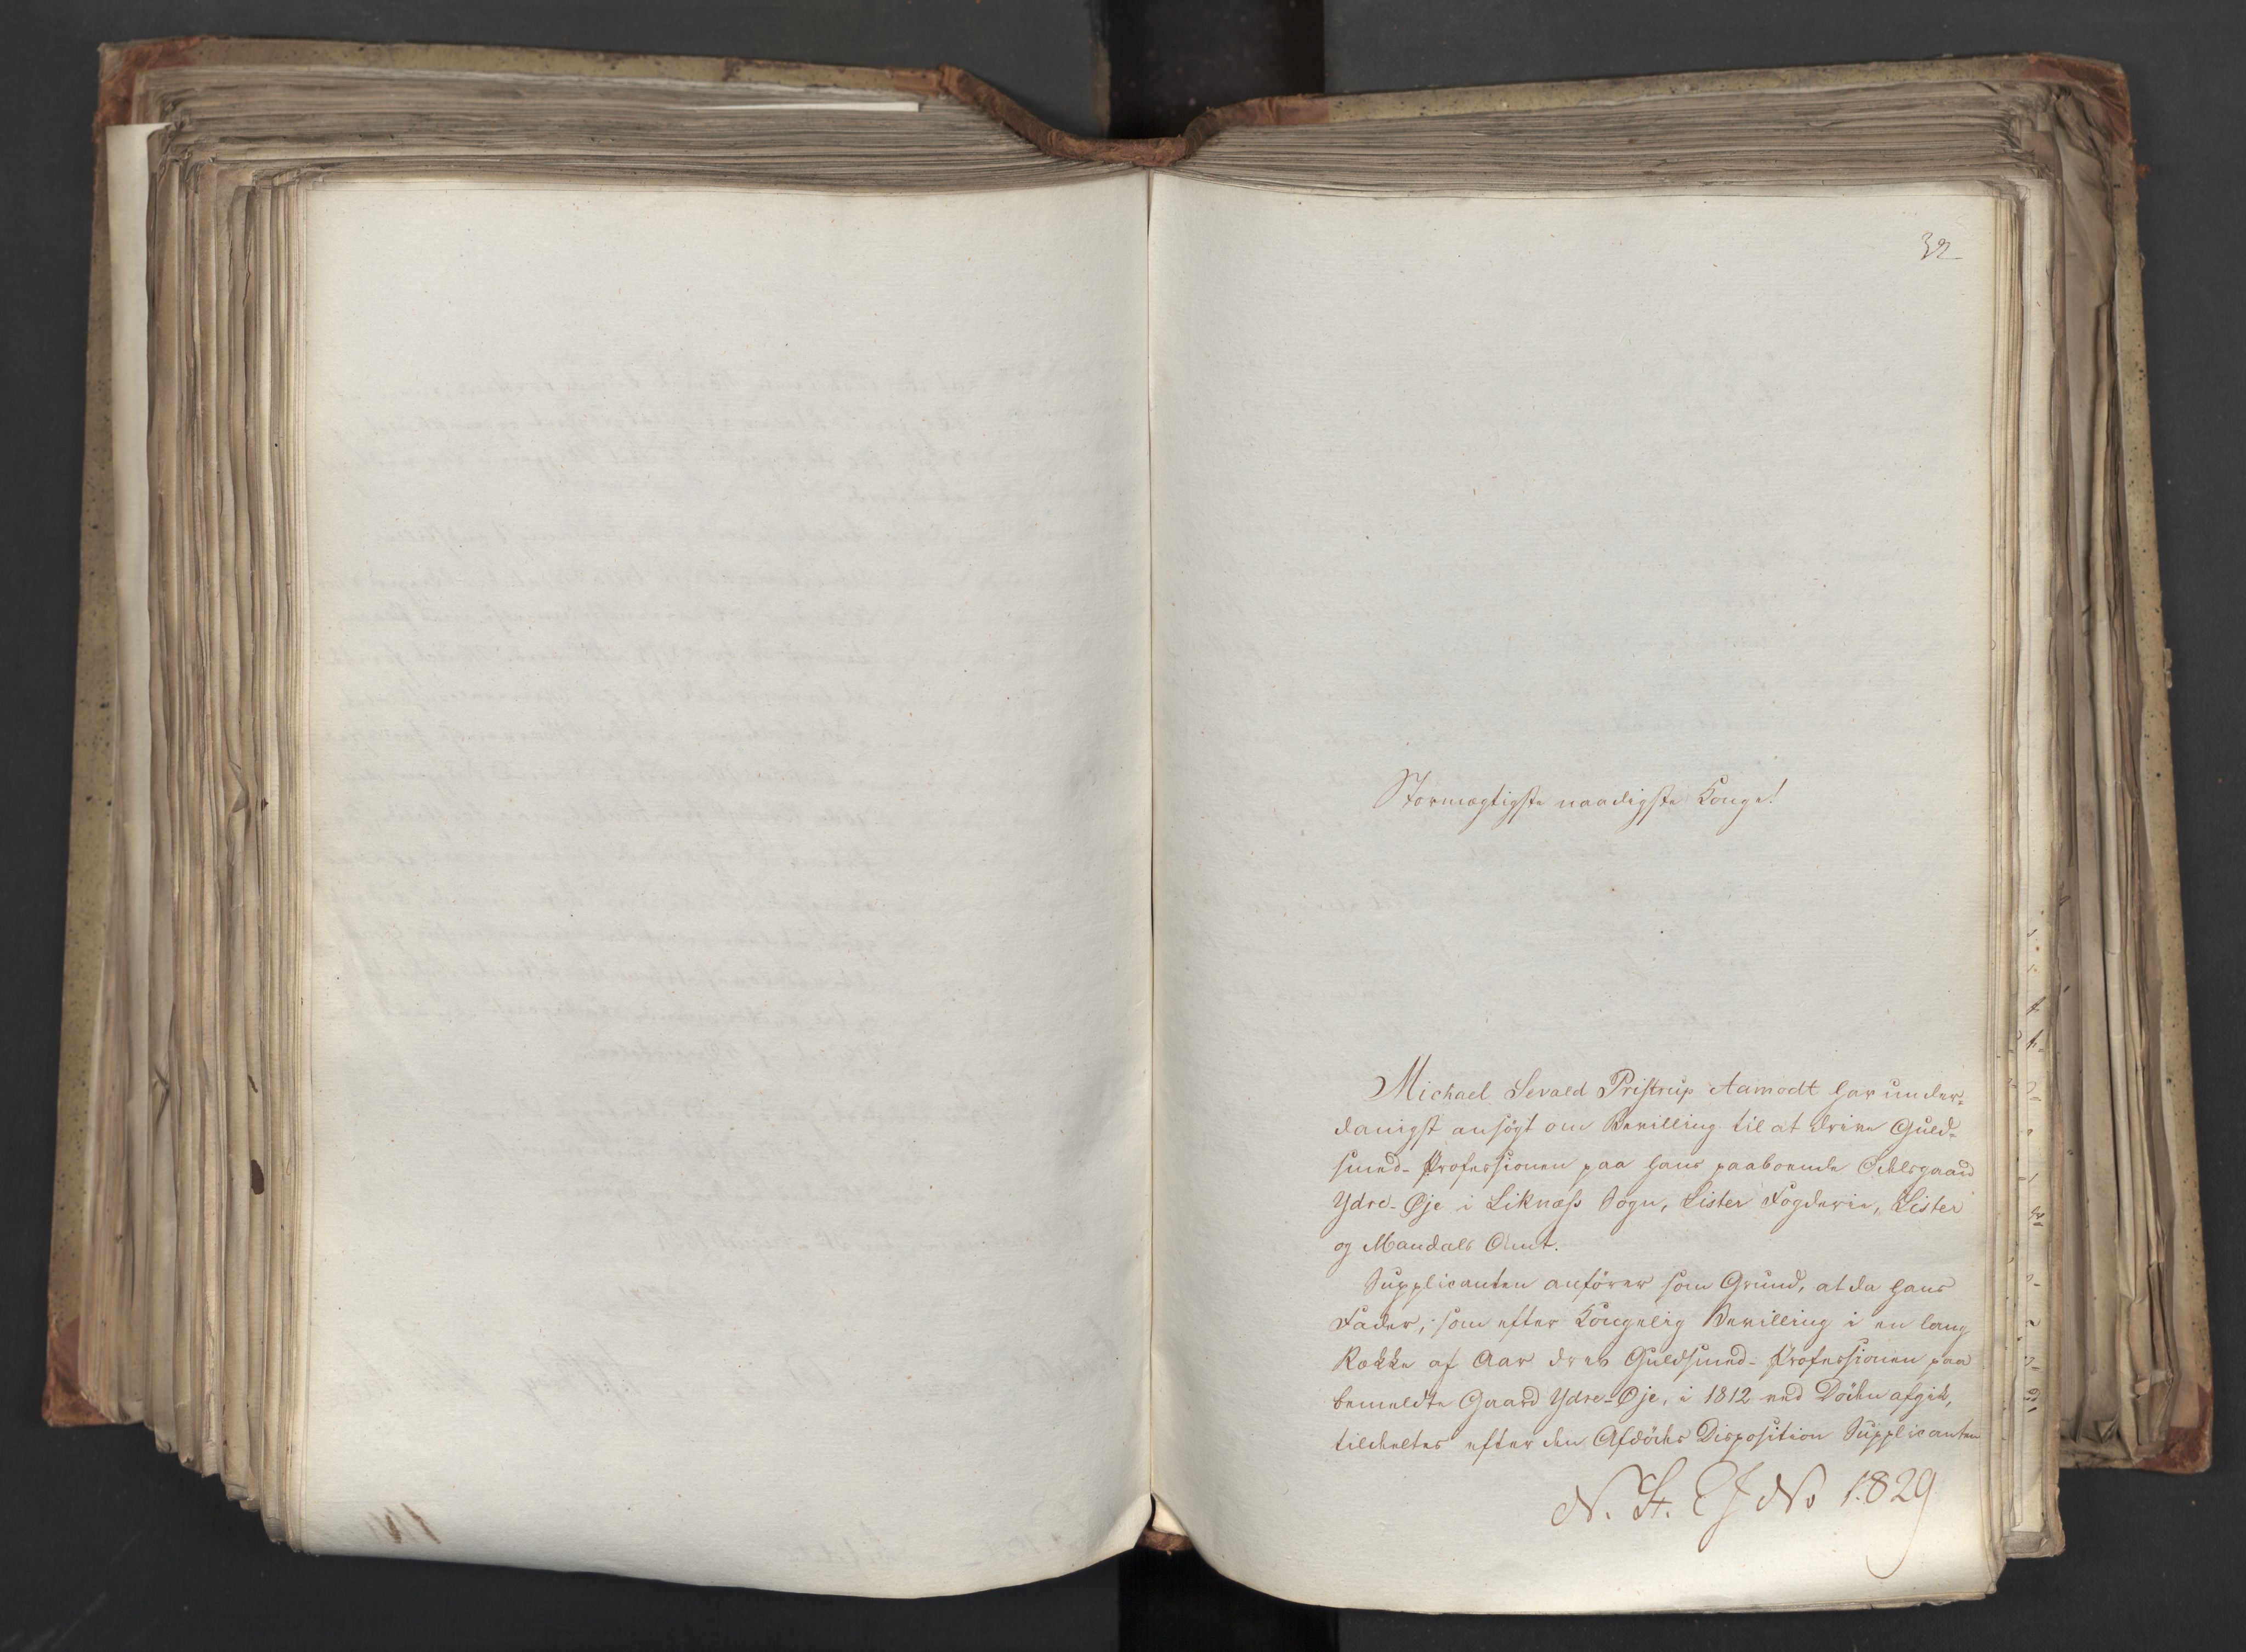 32
Stormægtigste naadigste Konge!
Michael Sevald Pristrup Aamodt har under-
danigst ansøgt om Bevilling til at drive Guld-
smed-Professionen paa hans paaboende Odelsgaard
Ydre-Øje i Liknæss Sogn, Lister Fogderie, Lister
og Mandals Amt.
Supplicanten anfører som Grund, at da hans
Fader, som efter Kongelig Bevilling i en lang
Række af Aar drev Guldsmed-Professionen paa
bemeldte Gaard Ydre-Øje, i 1812 ved Døden afgik,
tildeeltes efter den Afdødes Disposition Supplicanten
N. St. E J No 1829